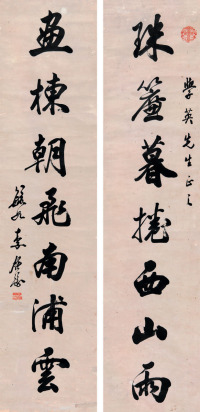 學英先生正之
珠簾暮捲西山雨
畫棟朝飛南浦雲